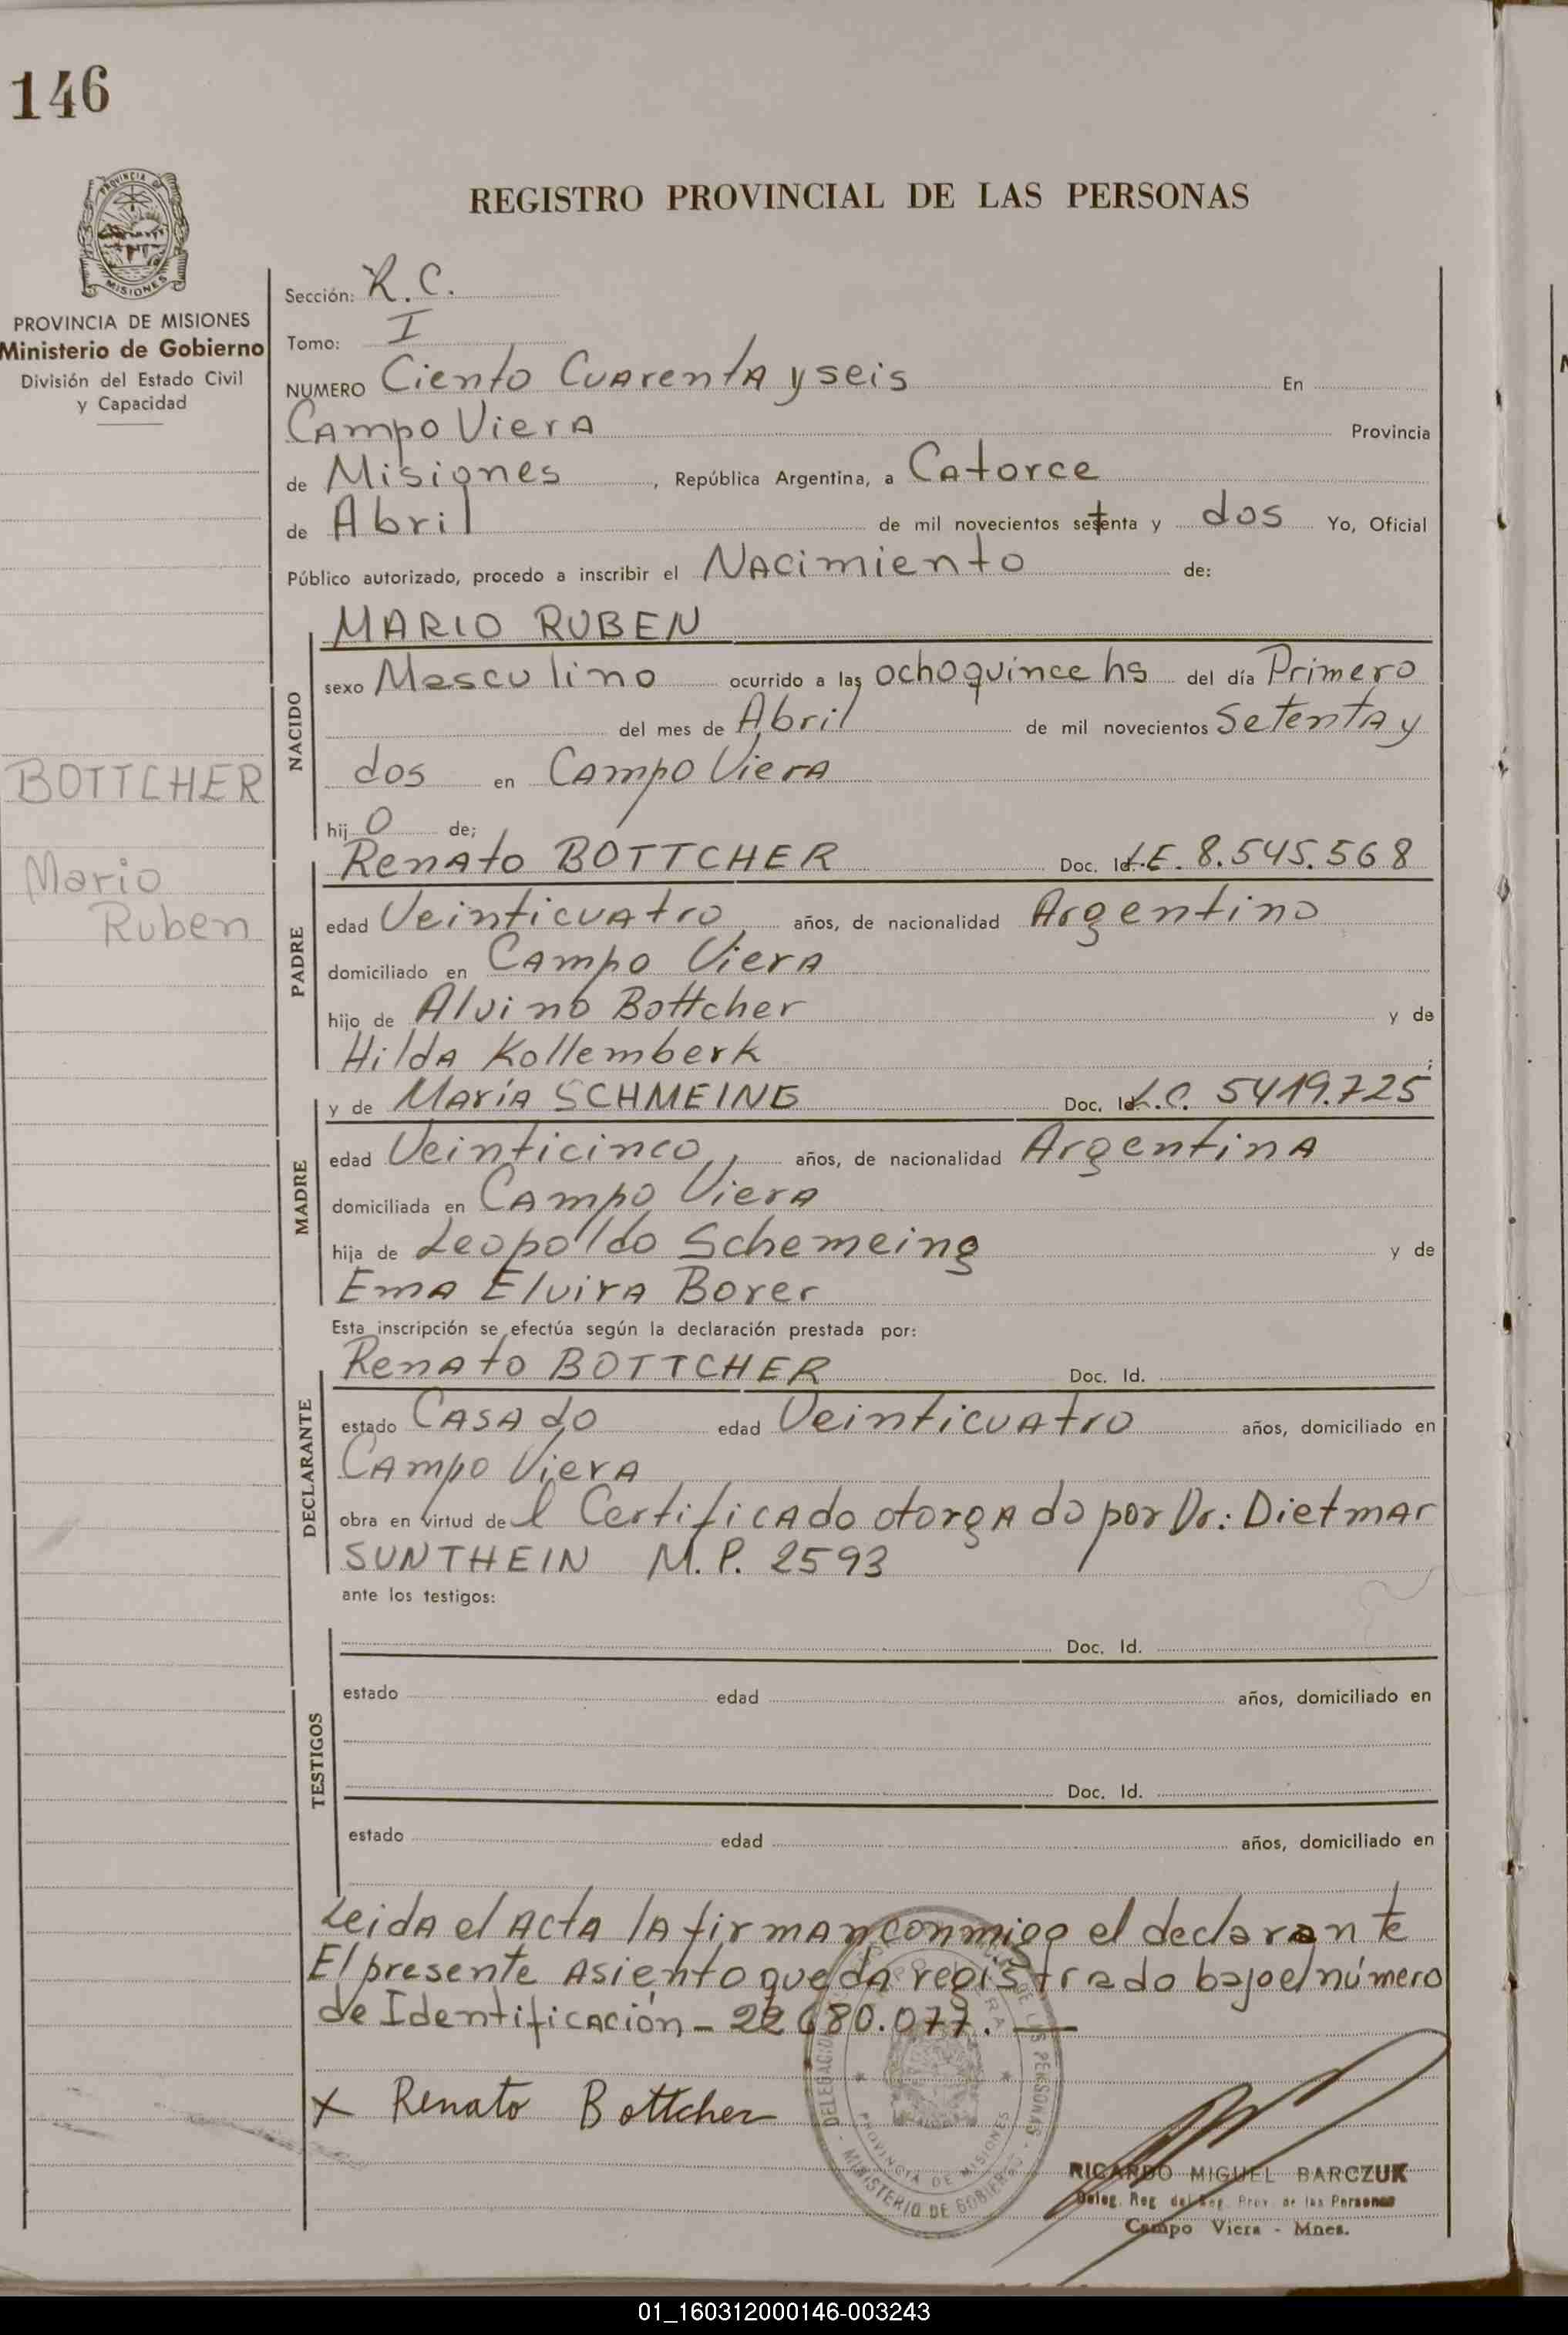 146
PROVINCIA DE MISIONES
PROVINCIA DE MISIONES
Ministerio de Gobierno
División del Estado Civil
y Capacidad
BOTTCHER
Mario
Ruben
REGISTRO PROVINCIAL DE LAS PERSONAS
Sección: R.C.
Tomo: I
NUMERO Ciento Cuarenta y seis En
Campo Viera Provincia
de Misiones, República Argentina, a Catorce
de Abril de mil novecientos setenta y dos Yo, Oficial
Público autorizado, procedo a inscribir el Nacimiento de:
NACIDO
MARIO RUBEN
sexo Masculino ocurrido a las ocho quince hs del día Primero
del mes de Abril de mil novecientos Setenta y
dos en Campo Viera
hijo de;
PADRE
Renato BOTTCHER Doc. Id. L.E. 8.545.568
edad Veinticuatro años, de nacionalidad Argentino
domiciliado en Campo Viera
hijo de Alvino Bottcher y de
Hilda Kollemberk ;
MADRE
y de María SCHMEING Doc. Id. L.C. 5419.725
edad Veinticinco, años, de nacionalidad Argentina
domiciliada en Campo Viera
hija de Leopoldo Schemeing y de
Ema Elvira Borer
Esta inscripción se efectúa según la declaración prestada por:
DECLARANTE
Renato BOTTCHER Doc. Id.
estado Casado edad Veinticuatro años, domiciliado en
Campo Viera
obra en virtud del Certificado otorgado por Dr.: Dietmar
SUNTHEIN M.P. 2593
ante los testigos:
TESTIGOS
Doc. Id.
estado edad años, domiciliado en
Doc. Id.
estado edad años, domiciliado en
Leida el Acta la firman conmigo el declarante
El presente Asiento queda registrado bajo el número
de Identificación - 22680.077. —
x Renato Bottcher
PROVINCIA DE MISIONES
MINISTERIO DE GOBIERNO
RICARDO MIGUEL BARCZUK
Deleg. Reg. del Reg. Prov. de las Personas
Campo Viera - Mnes.
01_160312000146-003243